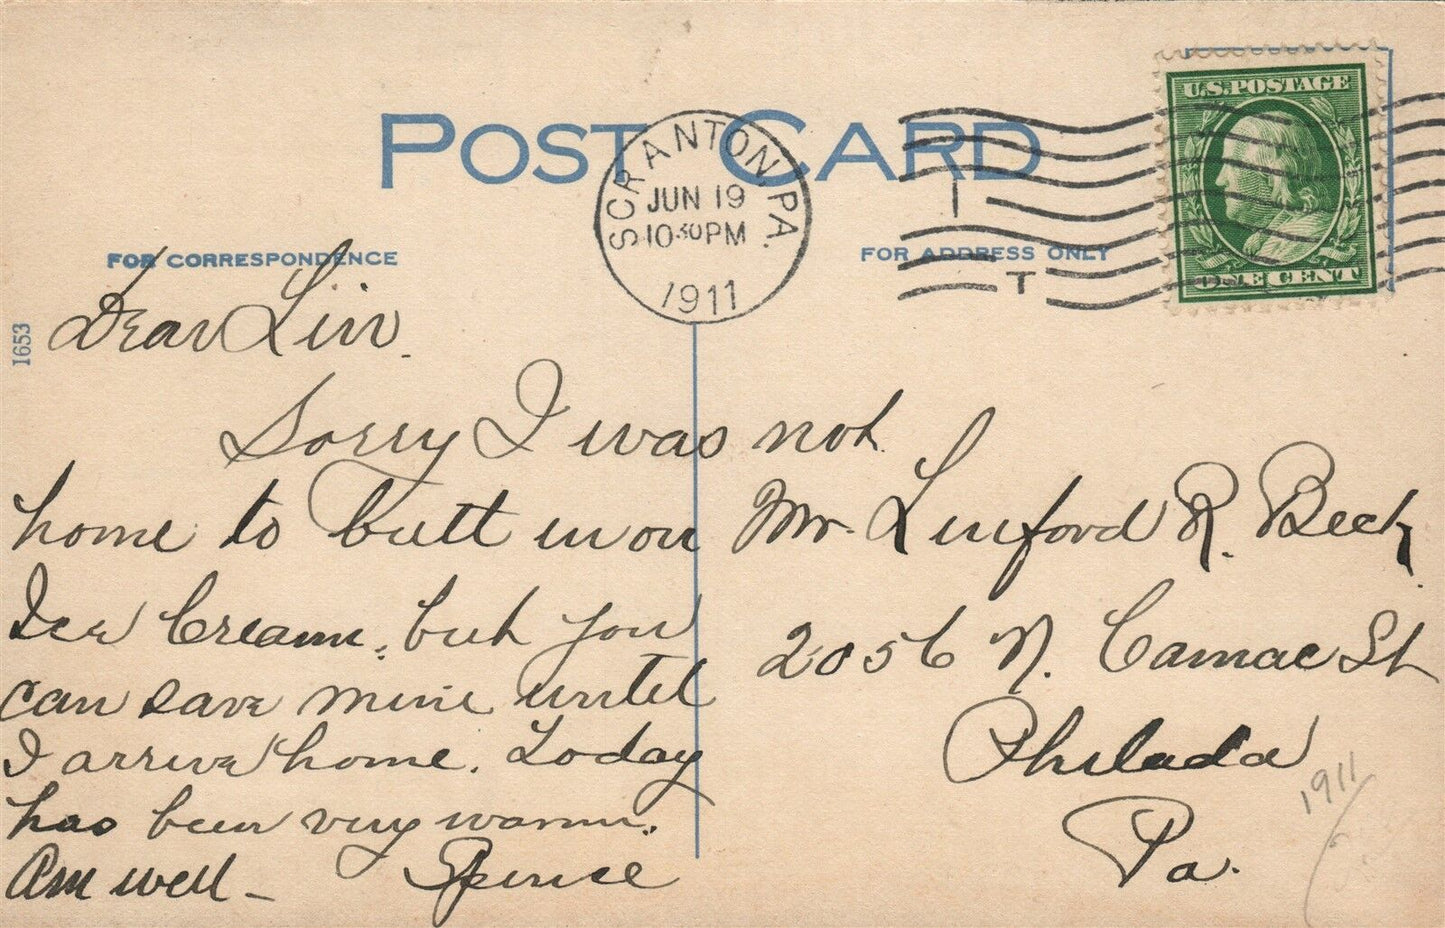 POST CARD
SCRANTON, PA.
JUN 19
10-30 PM
1911
T
U.S. POSTAGE
ONE CENT
FOR CORRESPONDENCE
FOR ADDRESS ONLY
1653
Dear Lin.
Sorry I was not
home to butt in on
Ice Cream, but you
can save mine until
I arrive home. Today
has been very warm.
Am well –
Mr. Linford R. Beck.
2056 N. Camac St
Philada
Pa.
1911